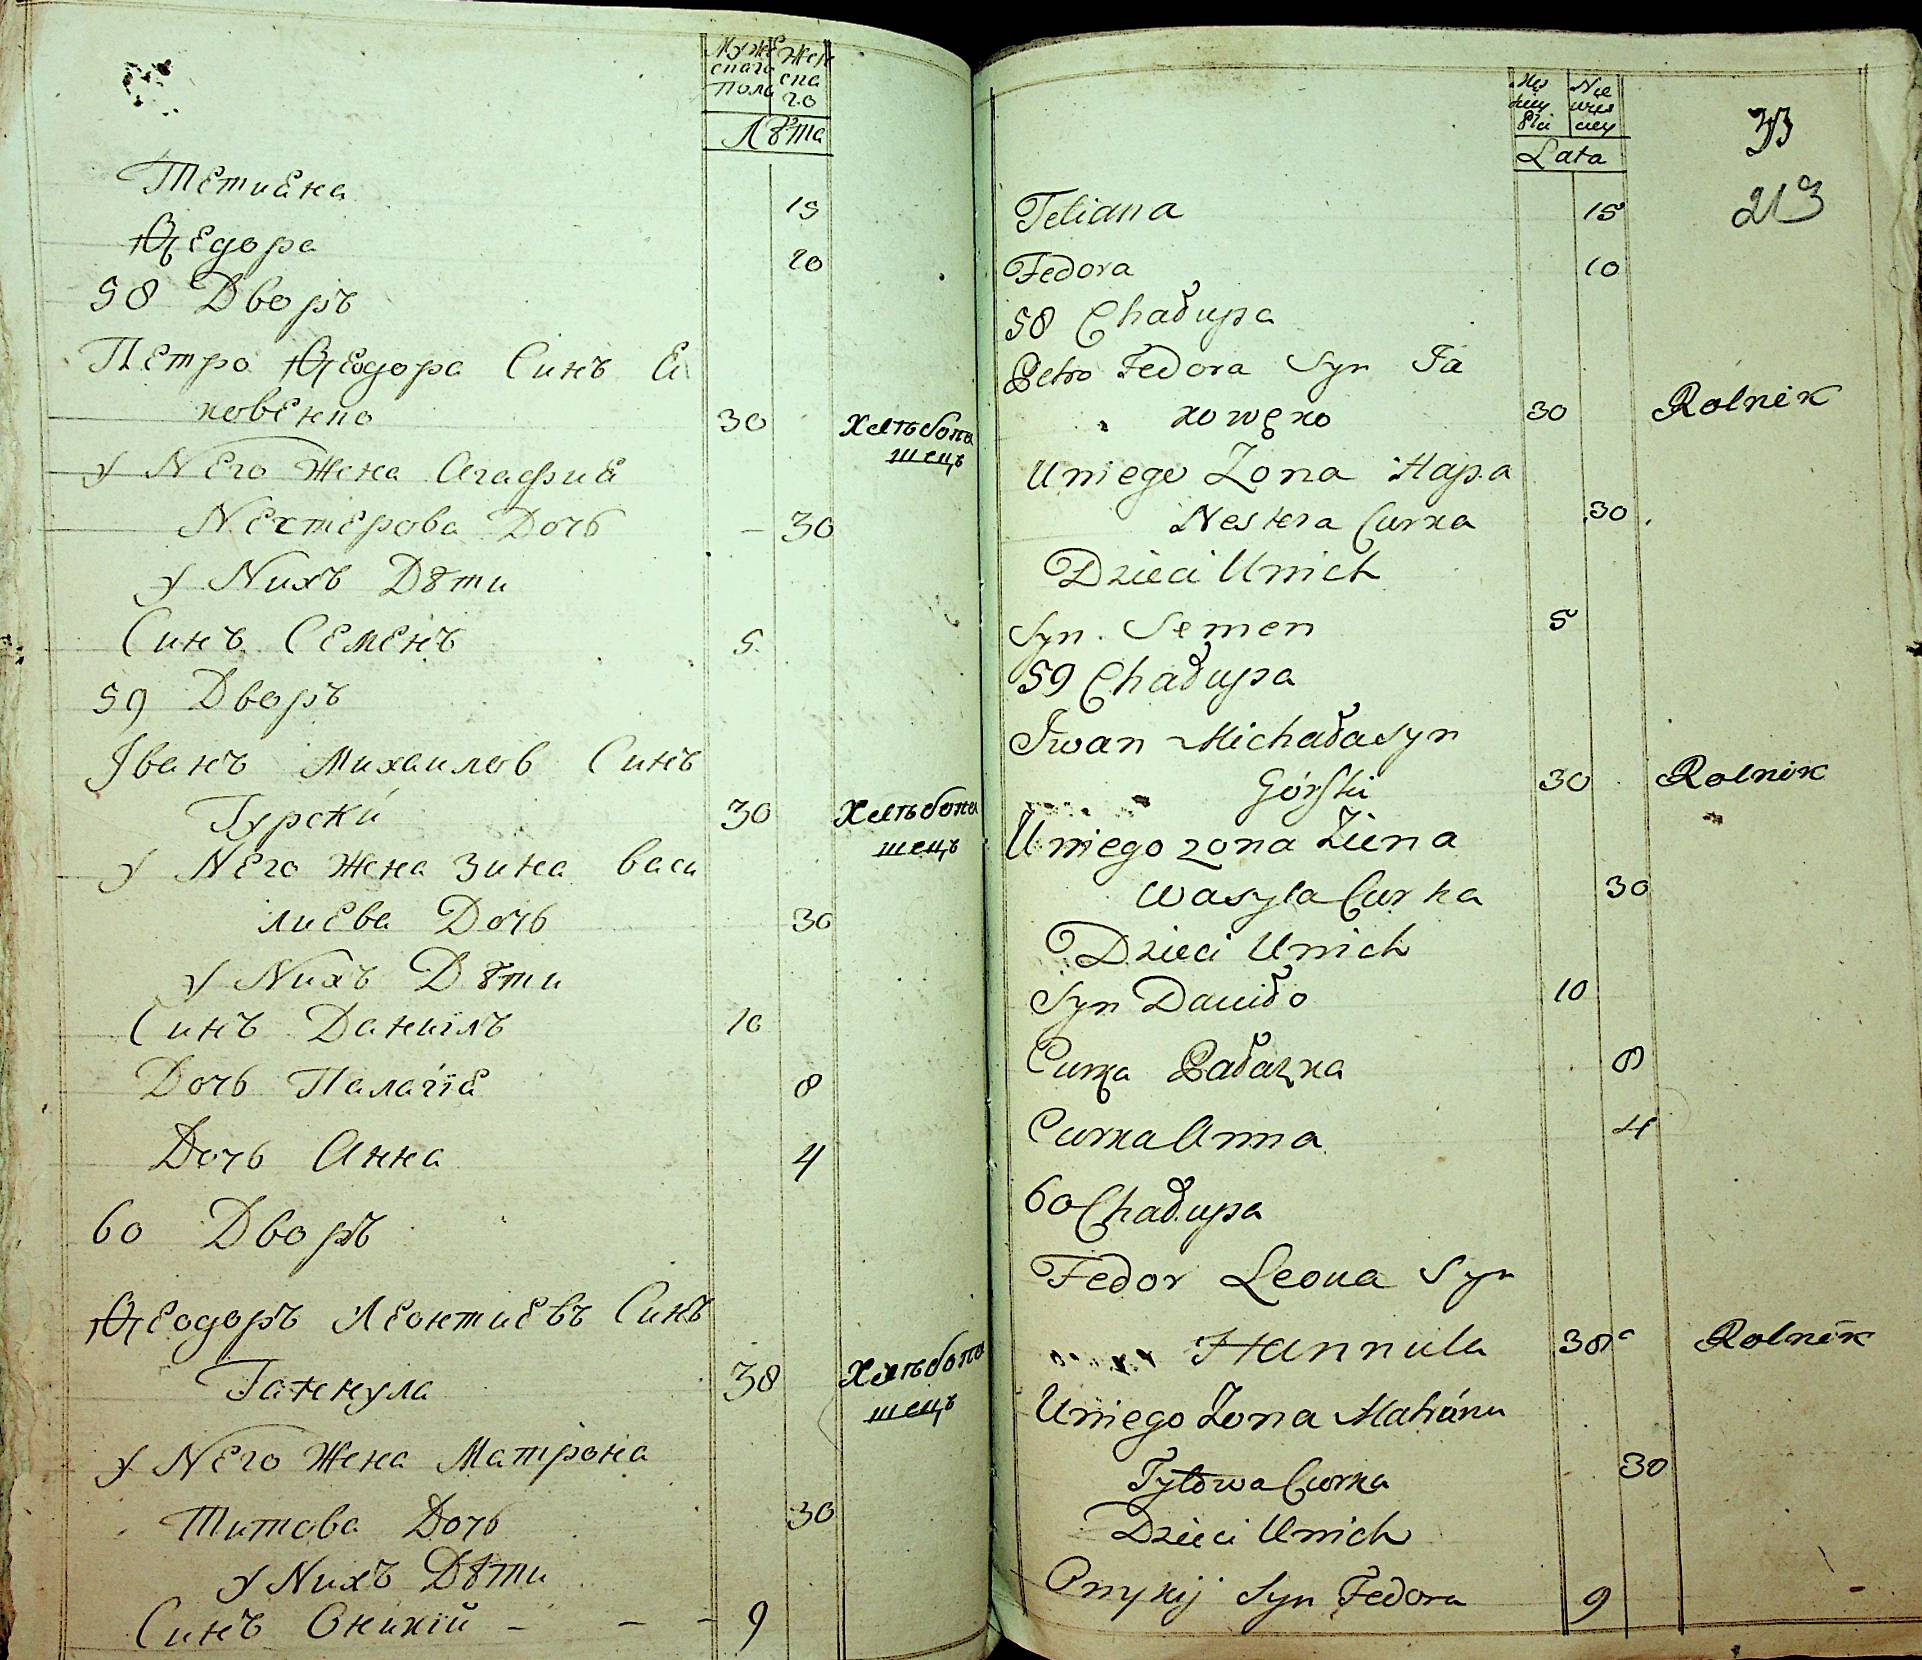 Мужескаго пола
Женскаго
Лѣта
Тетиѣна
15
Ѳедора
10
58 Дворъ
Петро Ѳеодора Синъ Я
ковенко
30
Хлѣбопа
шецъ
У Него Жена Агафиѣ
Нехтерова Дочь
30
У Нихъ Дѣти
Синъ Семенъ
5
59 Дворъ
Іванъ Михаилов Синъ
Гурски
30
Хлѣбопа
шецъ
У Него Жена Зина Васи
лиева Дочь
30
У Нихъ Дѣти
Синъ Даниїлъ
10
Дочь Палагіѣ
8
Дочь Анна
4
60 Дворъ
Ѳеодоръ Леонтиевъ Синъ
Ганнула
38
Хлѣбопа
шецъ
У Него Жена Матрона
Титова Дочь
30
У Нихъ Дѣти
Синъ Оникій
9
Lata
33
213
Tetiana
15
Fedora
10
58 Chałupa
Petro Fedora Syn Ja
kowęko
30
Rolnik
Uniego Żona Hapa
Nestera Curka
30
Dzieci Unich
Syn Semen
5
59 Chałupa
Iwan Michała Syn
Górski
30
Rolnik
Uniego zona Zina
Wasyla Curka
30
Dzieci Unich
Syn Daniło
10
Curka Pałazka
8
Curka Anna
4
60 Chałupa
Fedor Leona Syn
Hannula
38
Rolnik
Uniego Żona Matróna
Tytowa Curka
30
Dzieci Unich
Onykij Syn Fedora
9